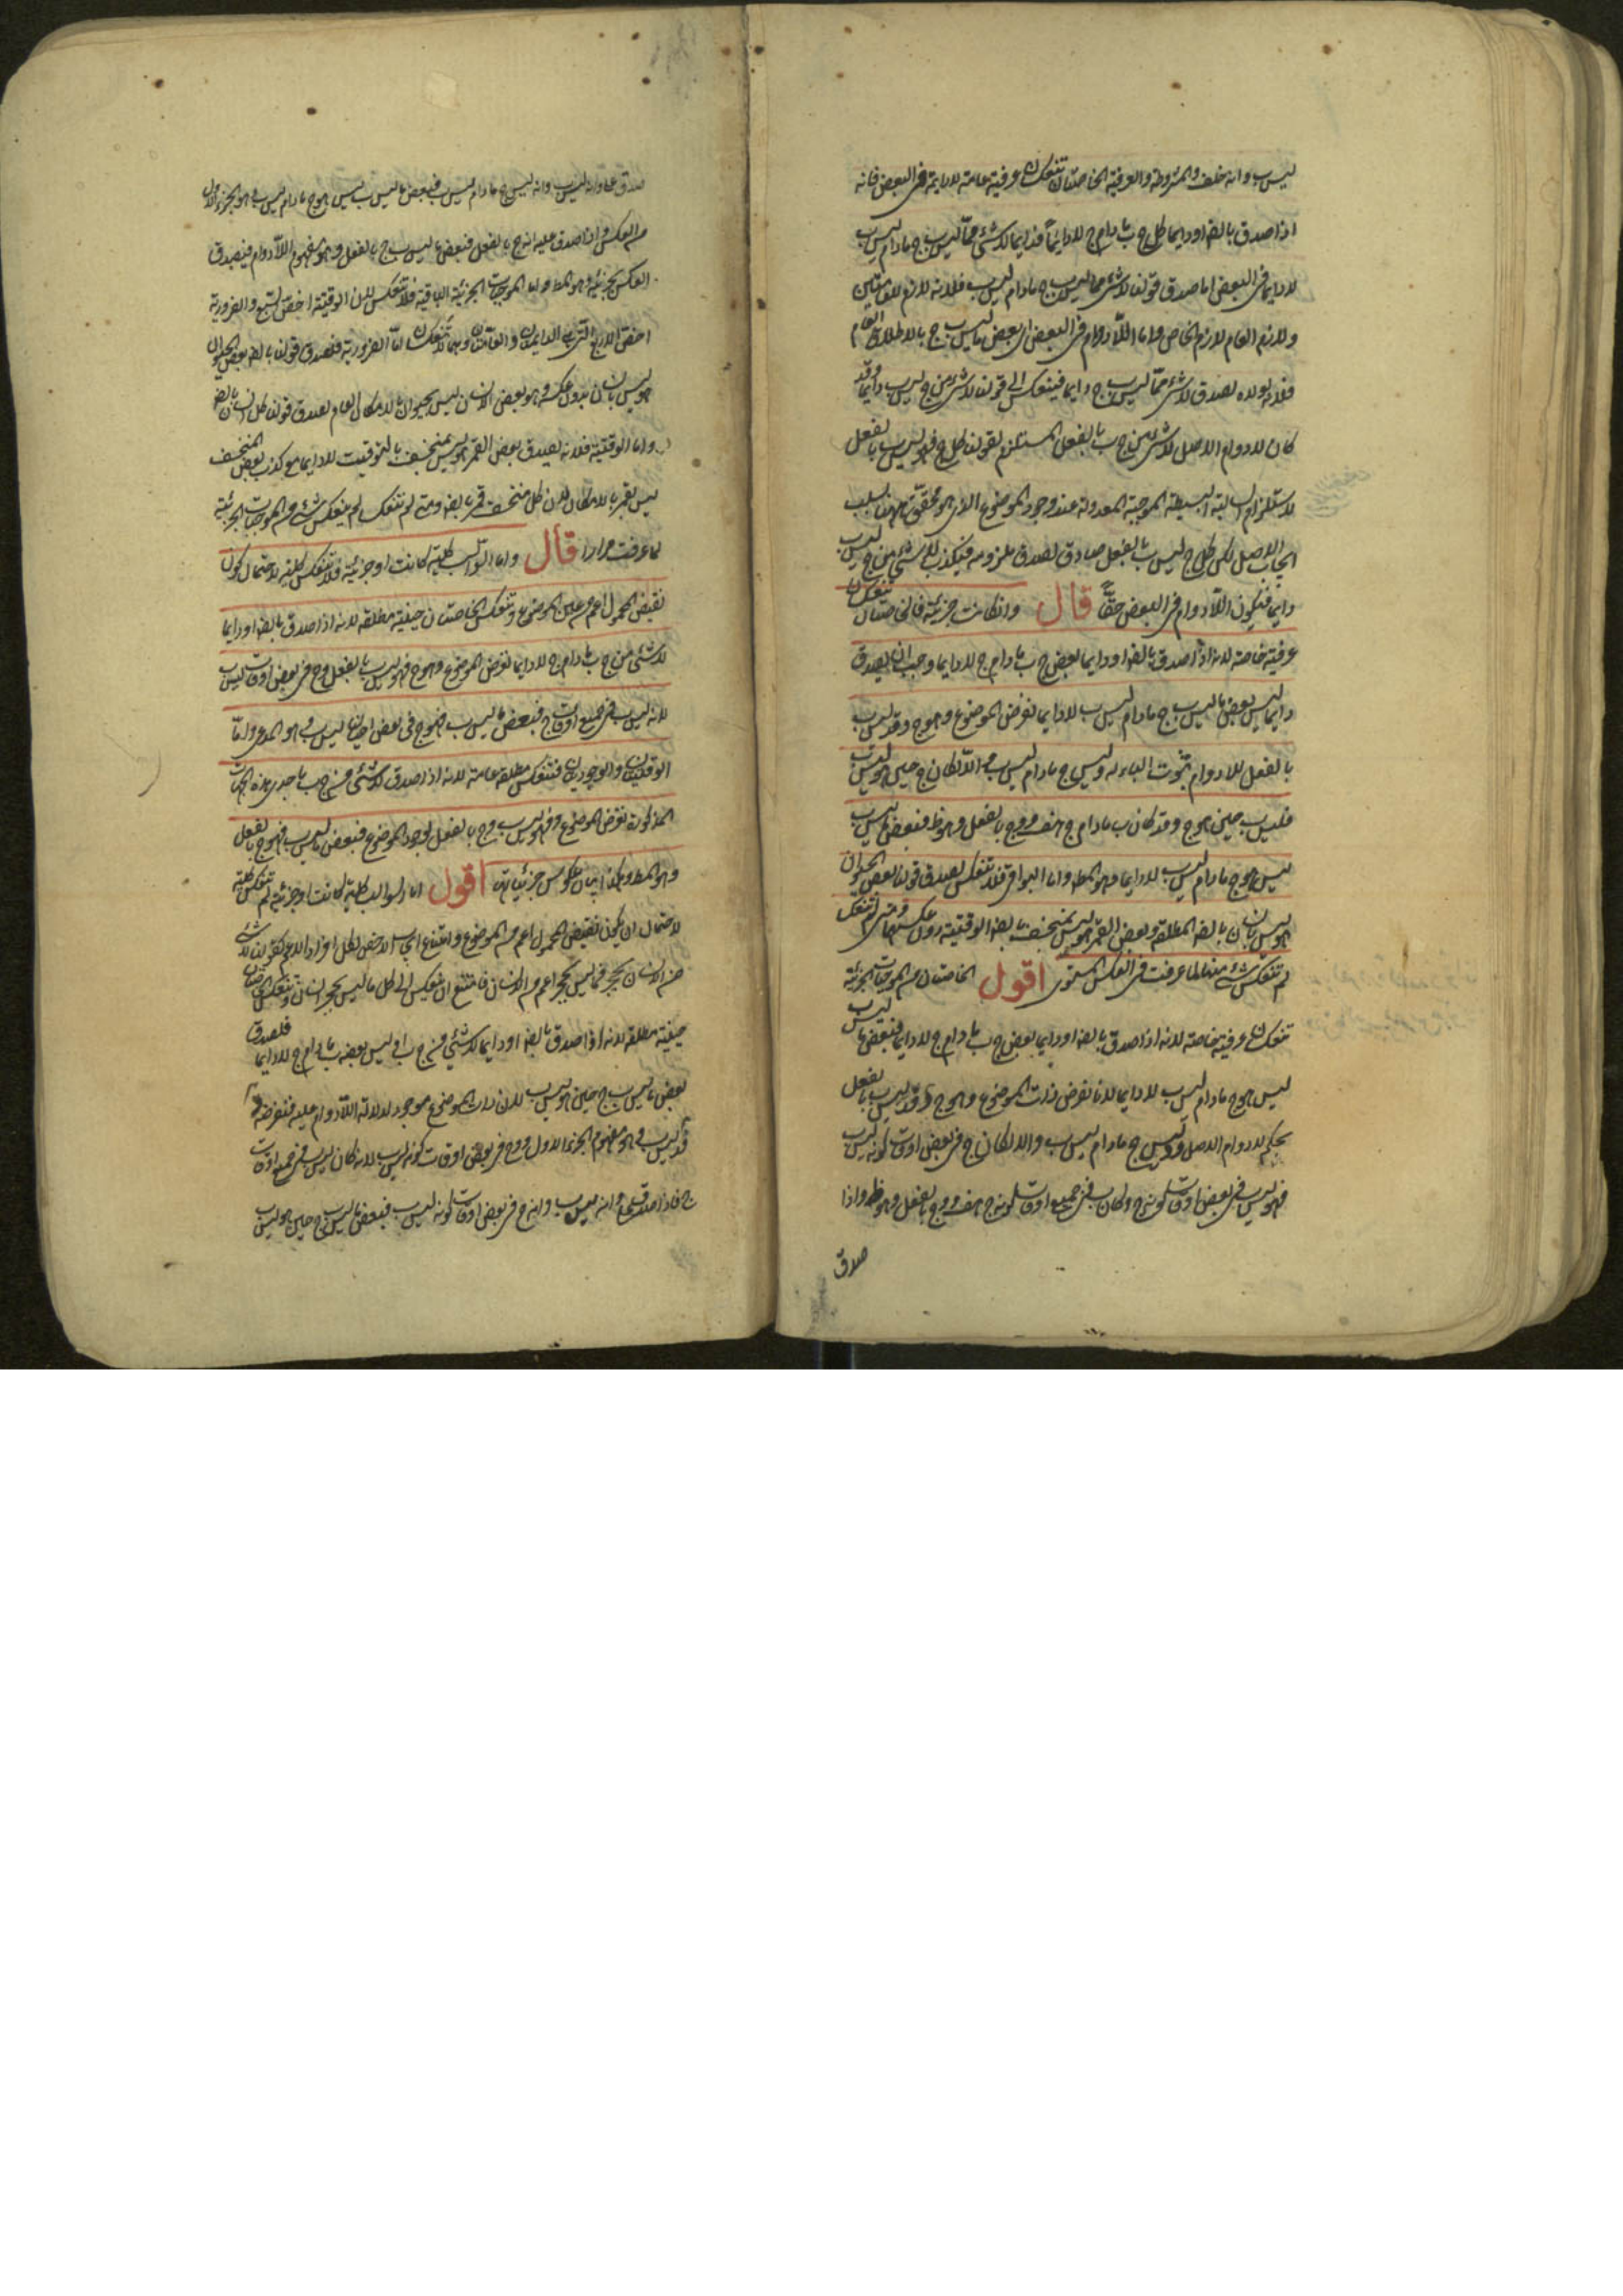 ليس ب وانه خلف والمشروطة والعرفية الخاصتان تنعكسان عرفية عامة لادايمة فى البعض فانه
اذا صدق بالضـ او دايما كل ج ب مادام ج لادايما فدايما لاشئ مما ليس ب ج مادام ليس ب
لادايما فى البعض اما صدق قولنا لاشئ مما ليس ب ج مادام ليس ب فلانه لازم للعامتين
ولازم العام لازم الخاص واما اللادوام فى البعض اى بعض ما ليس ب ج بالاطلاق العام
فلانه لولاه لصدق لاشئ مما ليس ب ج دايما فينعكس الى قولنا لاشئ من ج ليس ب دايما وقد
كان لادوام الاصل لاشئ من ج ب بالفعل المستلزم لقولنا كل ج فهو ليس ب بالفعل
لاستلزام السالبة البسيطة الموجبة المعدولة عند وجود الموضوع الذى هو محقق ههنا بسبب
ايجاب الاصل لكن كل ج ليس ب بالفعل صادق لصدق ملزومه فيكذب لاشئ من ج ليس ب
دايما فيكون اللادوام فى البعض حقا قال وان كانت جزئية فالخاصتان تنعكسان
عرفية خاصة لانه اذا صدق بالضـ او دايما بعض ج ب مادام ج لادايما وجب ان يصدق
دايما ليس بعض ما ليس ب ج مادام ليس ب لادايما نفرض الموضوع وهو ج د فد ليس ب
بالفعل للادوام ثبوت الباء له وليس ج مادام ليس ب والا لكان ج حين هو ليس ب
فليس ب حين هو ج وقد كان ب مادام ج هف و د ج بالفعل وهو ظ فبعض ما ليس ب
ليس هو ج مادام ليس ب لادايما وهو المط واما البواقى فلا تنعكس لصدق قولنا بعض الحيوان
هو ليس بانسان بالضـ المطلقة وبعض القمر هو ليس بمنخسف بالضـ الوقتية دون عكسهما ومتى لم تنعكسا
لم تنعكس شئ منها لما عرفت فى العكس المستوى اقول الخاصتان من الموجبات الجزئية
تنعكسان عرفية خاصة لانه اذا صدق بالضـ او دايما بعض ج ب مادام ج لادايما فبعض ما ليس ب
ليس هو ج مادام ليس ب لادايما لانا نفرض ذات الموضوع وهو ج د فد ليس ب بالفعل
بحكم لادوام الاصل وليس ج مادام ليس ب والا لكان ج فى بعض اوقات كونه ليس ب
فهو ليس ب فى بعض اوقات كونه ج وكان ب فى جميع اوقات كونه ج هف و د ج بالفعل وهو ظ واذا
صدق
صدق على د انه ليس ب وانه ليس ج مادام ليس ب فبعض ما ليس ب ليس هو ج مادام ليس ب وهو الجزء الاول
من العكس واذا صدق عليه انه ج بالفعل فبعض ما ليس ب ج بالفعل وهو مفهوم اللادوام فيصدق
العكس بجزئيه وهو المط واما الموجبات الجزئية الباقية فلا تنعكس لان الوقتية اخص السبع والضرورية
اخص الاربع التى هى الدايمتان والعامتان وهما لا تنعكسان اما الضرورية فلصدق قولنا بالضـ بعض الحيوان
هو ليس بانسان بدون عكسه وهو بعض الانسان ليس بحيوان بالامكان العام لصدق قولنا كل انسان حيوان بالضـ
واما الوقتية فلانه يصدق بعض القمر هو ليس بمنخسف بالتوقيت لادايما مع كذب بعض المنخسف
ليس بقمر بالامكان لان كل منخسف قمر بالضـ ومتى لم تنعكسا لم ينعكس شئ من الموجبات الجزئية
لما عرفت مرارا قال واما السوالب كلية كانت او جزئية فلا تنعكس كلية لاحتمال كون
نقيض المحمول اعم من عين الموضوع وتنعكس الخاصتان حينية مطلقة لانه اذا صدق بالضـ او دايما
لاشئ من ج ب مادام ج لادايما نفرض الموضوع وهو ج د فهو ليس ب بالفعل و ج فى بعض اوقات ليس ب
لانه ليس ب فى جميع اوقات ج فبعض ما ليس ب فهو ج فى بعض احيان ليس ب وهو المدعى واما
الوقتيتان والوجوديتان فتنعكس مطلقة عامة لانه اذا صدق لاشئ من ج ب باحدى هذه الجهات
المذكورة نفرض الموضوع د فهو ليس ب و ج بالفعل لوجود الموضوع فبعض ما ليس ب فهو ج بالفعل
وهو المط وهكذا بيان عكوس جزئياتها اقول اما السوالب كلية كانت او جزئية لم تنعكس كلية
لاحتمال ان يكون نقيض المحمول اعم من الموضوع وامتناع ايجاب الاخص لكل افراد الاعم كقولنا لاشئ
من الانسان بحجر فما ليس بحجر اعم من الانسان فامتنع ان ينعكس الى كل ما ليس بحجر انسان وتنعكس الخاصتان
حينية مطلقة لانه اذا صدق بالضـ او دايما لاشئ من ج ب او ليس بعضه ب مادام ج لادايما فلصدق
بعض ما ليس ب ج حين هو ليس ب لان ذات الموضوع موجود لدلالة اللادوام عليه فنفرضه د
فد ليس ب وهو مفهوم الجزء الاول و ج فى بعض اوقات كونه ليس ب لانه كان ليس ب فى جميع اوقات
ج فاذا صدق على د انه ليس ب وانه ج فى بعض اوقات كونه ليس ب فبعض ما ليس ب ج حين هو ليس ب